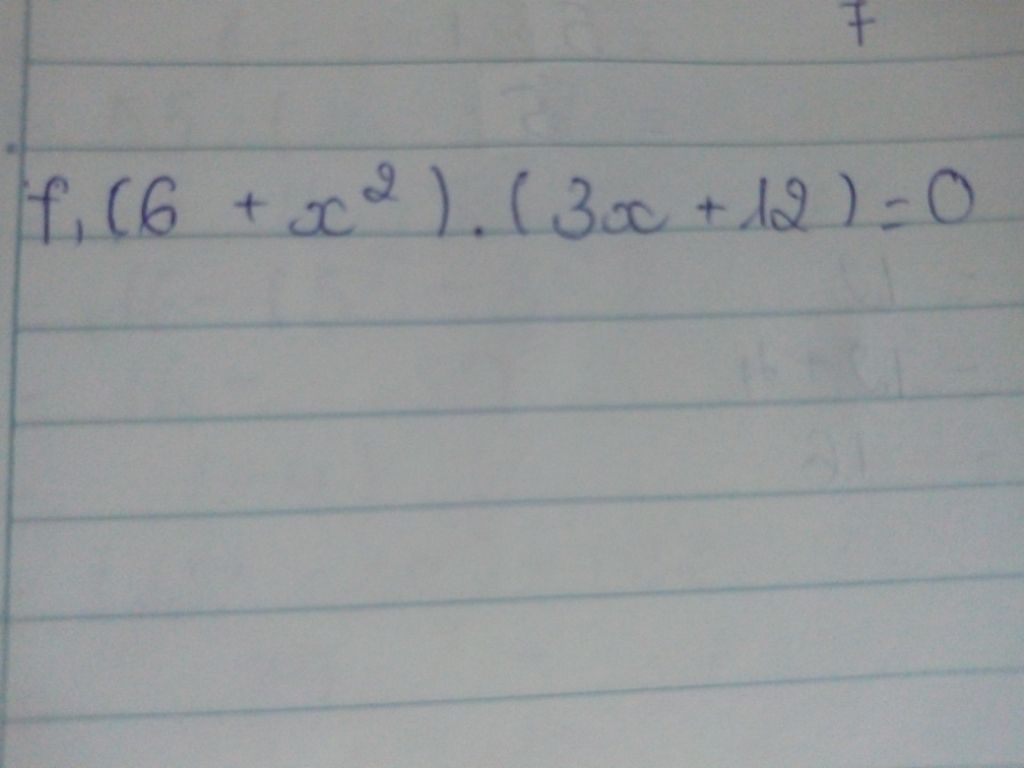 7
f, (6 + x²). (3x + 12) = 0